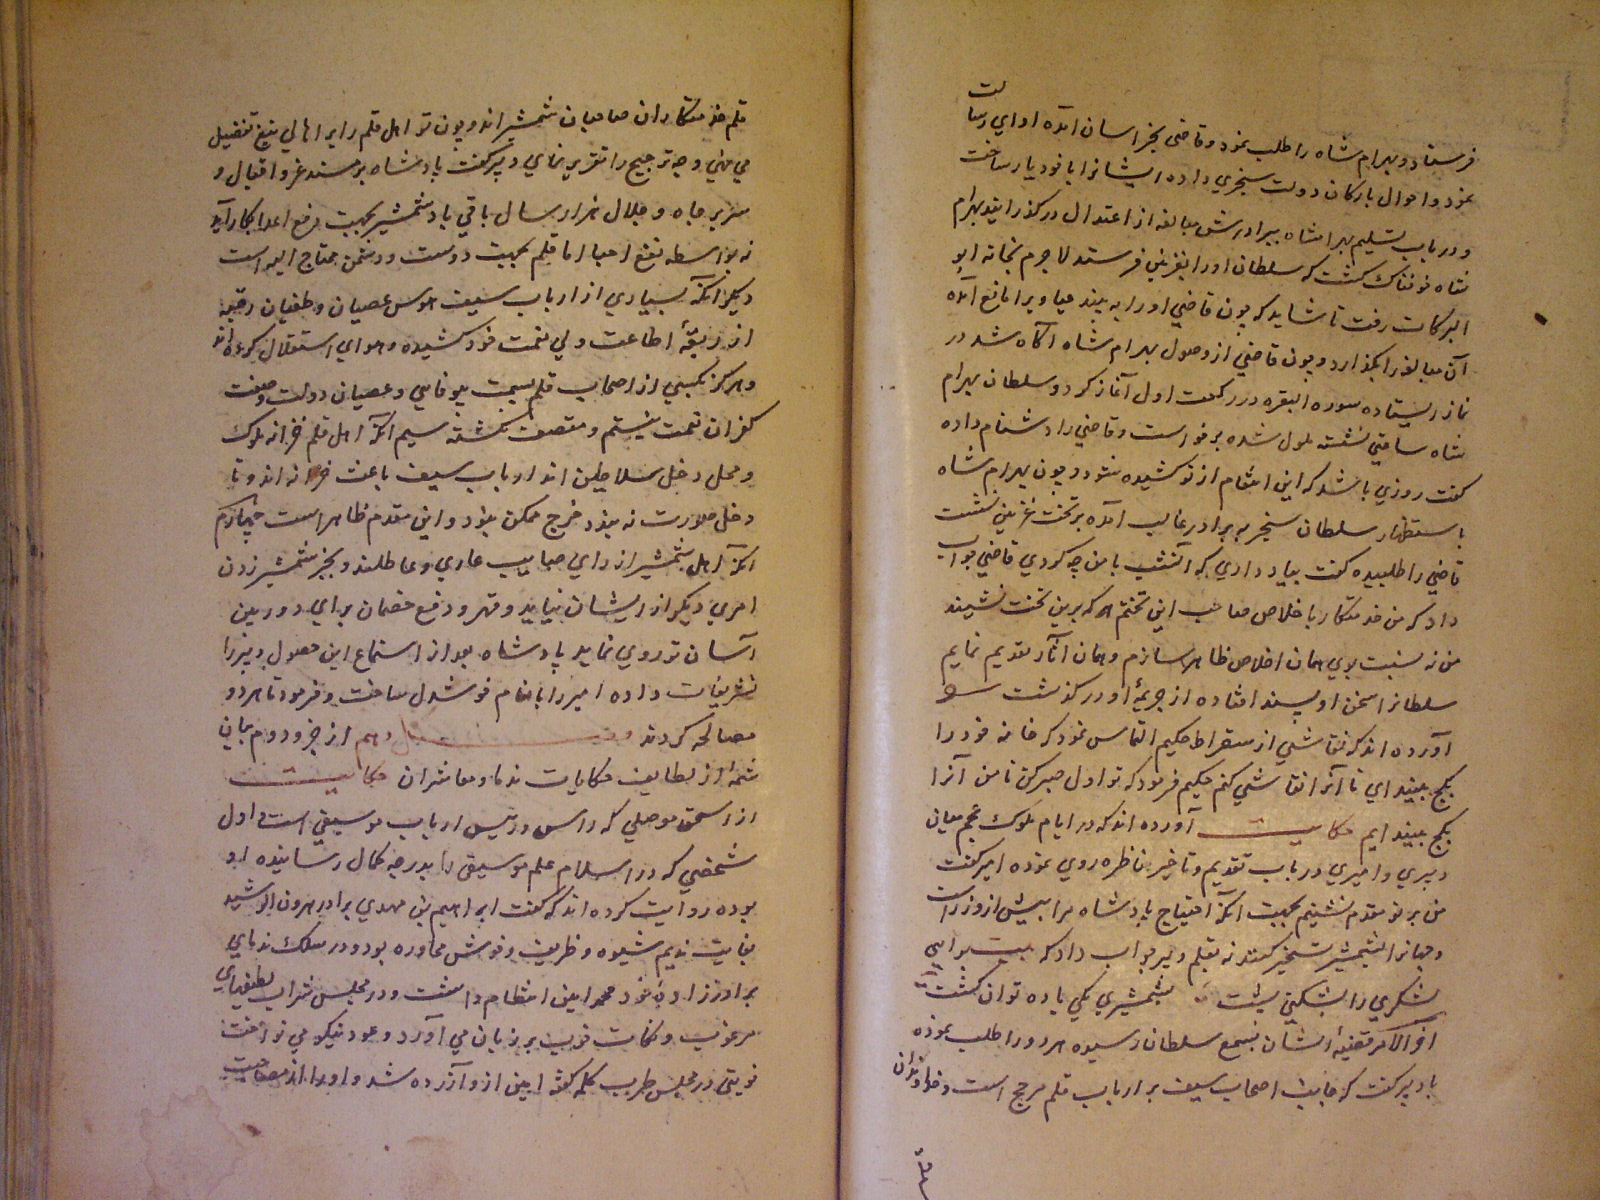 فرستاد و بهرام شاه را طلب نمود و قاضی بخراسان آمده ادای رسالت
نمود و احوال بارکان دولت سنجری داده ایشانرا با خود یار ساخت
و در باب تسلیم بهرامشاه ببرادرش مبالغه از اعتدال درگذرانید بهرام
شاه خوفناک گشت که سلطان او را بغزنین فرستد لاجرم بخانه ابو
البرکات رفت تا شاید که چون قاضی او را به بیند حیا ویرا مانع آمده
آن مبالغه را بگذارد و چون قاضی از وصول بهرام شاه آگاه شد در
نماز ایستاده سوره البقره در رکعت اول آغاز کرد و سلطان بهرام
شاه ساعتی نشسته ملول شده برخواست و قاضی را دشنام داده
گفت روزی باشد که این انتقام از تو کشیده شود و چون بهرام شاه
باستظهار سلطان سنجر بر برادر غالب آمده بر تخت غزنین نشست
قاضی را طلبیده گفت بیاد داری که آنشب با من چه کردی قاضی جواب
داد که من خدمتکار با خلاص صاحب این تختم هر که برین تخت نشیند
من نه نسبت بوی همان اخلاص ظاهر سازم و همان آثار تقدیم نمایم
سلطانرا سخن او پسند افتاده از جریمهٔ او درگذشت
آورده اند که نقاشی از سقراط حکیم التماس نمود که خانه خود را
بکچ بیندای تا آنرا نقاشی کنم حکیم فرمود که تو اول صبر کن تا من آنرا
بکچ بیندایم حکایت آورده اند که در ایام ملوک عجم میان
دبیری و امیری در باب تقدیم و تاخیر مناظره روی نموده امیر گفت
من بر تو مقدم نشینم بجهت آنکه احتیاج پادشاه مرا بیش از وزراست
و جهانرا بشمشیر تسخیر کنند نه بقلم دبیر جواب داد که بیت برایی
لشکری را بشکنی پشت بشمشیری یکی یا ده توان کشت
آخر الامر قضیهٔ ایشان بسمع سلطان رسیده هر دو را طلب نموده
با دبیر گفت که جانب اصحاب سیف بر ارباب قلم مرجح است و خداوندان
قلم خدمتکاران صاحبان شمشیر اند و چون تو اهل قلم را بر اهالی تیغ تفضیل
می نهی وجه ترجیح را تقریر نمای دبیر گفت پادشاه بر مسند عز و اقبال و
سریر جاه و جلال هزار سال باقی باد شمشیر بجهت دفع اعدا بکار آید
نه بواسطه نفع احبا اما قلم بجهت دوست و دشمن محتاج الیه است
دیگر آنکه بسیاری از ارباب سیف هوس عصیان و طغیان رقبه
از ربقهٔ اطاعت ولی نعمت خود کشیده و هوای استقلال کرده اند
و هرگز یکی از اصحاب قلم بسمت بیوفایی و عصیان دولت و صفت
کفران نعمت متسم و متصف نگشته سیم آنکه اهل قلم خزانه ملوک
و محل دخل سلاطین اند ارباب سیف باعث خزانه اند و تا
دخل صورت نه بندد خرج ممکن نبود و این مقدم ظاهر است چهارم
آنکه اهل شمشیر از رای صایب عاری و عاطلند و بجز شمشیر زدن
امری دیگر از ایشان نیاید و قهر و دفع خصمان برای دوربین
آسان تر روی نماید پادشاه بعد از استماع این فصول دبیر را
تشریفات داده امیر را بانعام خوشدل ساخت و فرمود تا هر دو
مصالحه کردند فصل دهم از جزو دوم در بیان
شمهٔ از لطایف حکایات ندما و معاشران حکایت
از اسحق موصلی که راس و رئیس ارباب موسیقی است و اول
شخصی که در اسلام علم موسیقی را بدرجه کمال رسانیده او
بوده روایت کرده اند که گفت ابراهیم بن مهدی برادر هرون الرشید
بغایت ندیم شیوه و ظریف و خوش محاوره بود و در سلک ندمای
برادرزادهٔ خود محمد امین انتظام داشت و در مجلس شراب لطیفهای
مرغوب و کلمات خوب بر زبان می آورد و عود نیکو می نواخت
نوبتی در مجلس طرب کلمه گفت امین ازو آزرده شد و او را از مصاحبت